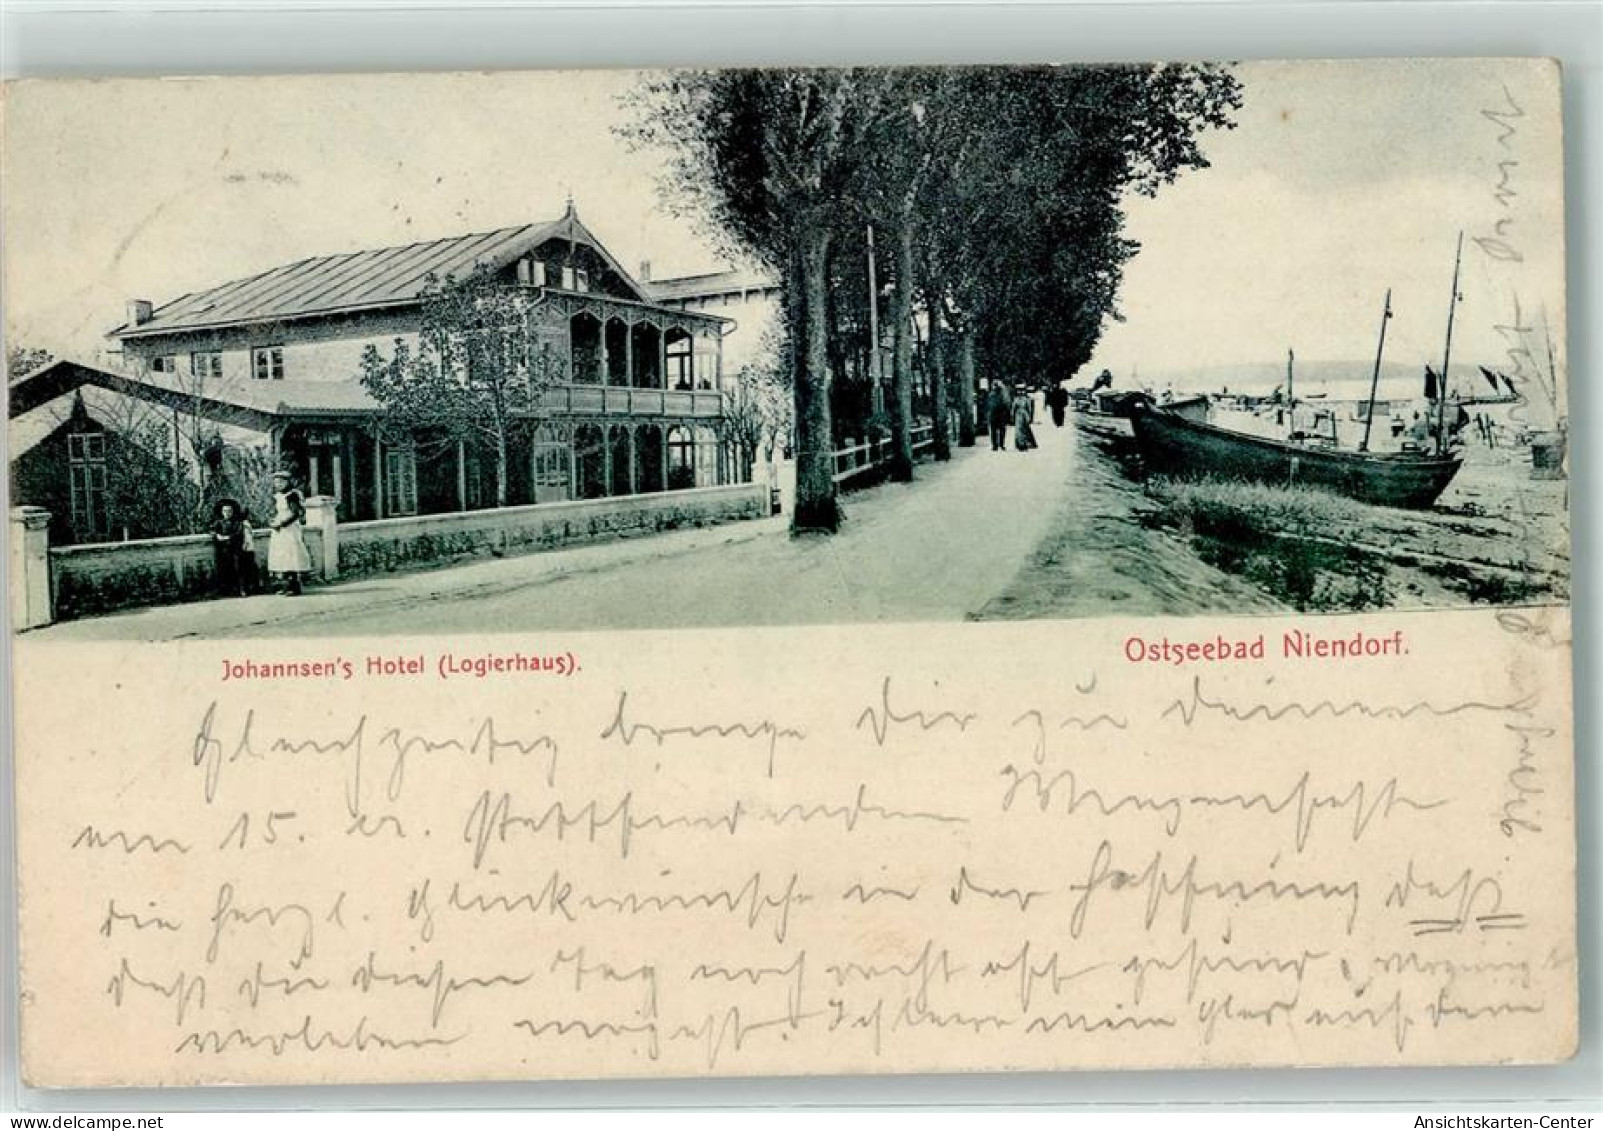 Johannsen's Hotel (Logierhaus).
Ostseebad Niendorf.
Gleichzeitig bringe Dir zu Deinem
am 15. cr. stattfindenden Wiegenfeste
die herzl. Glückwünsche in der Hoffnung daß
daß Du diesen Tag noch recht oft gesund &
verleben mögest. Ich leere mein Glas auf Dein
Wohl.
Ansichtskarten-Center